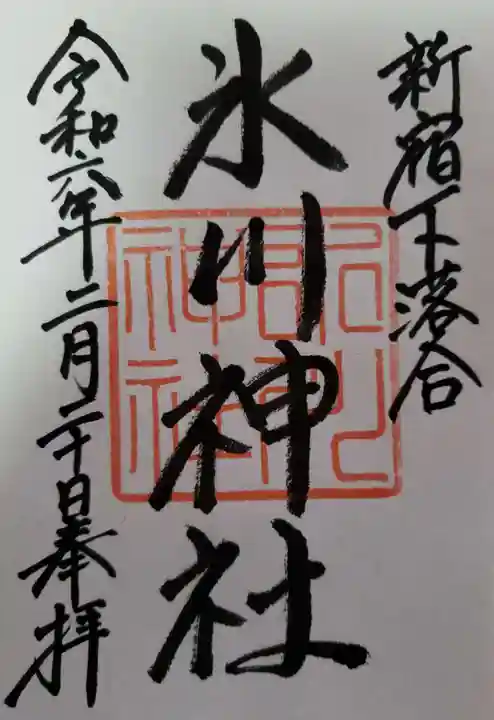 新宿下落合
氷川神社
令和六年二月二十日奉拝